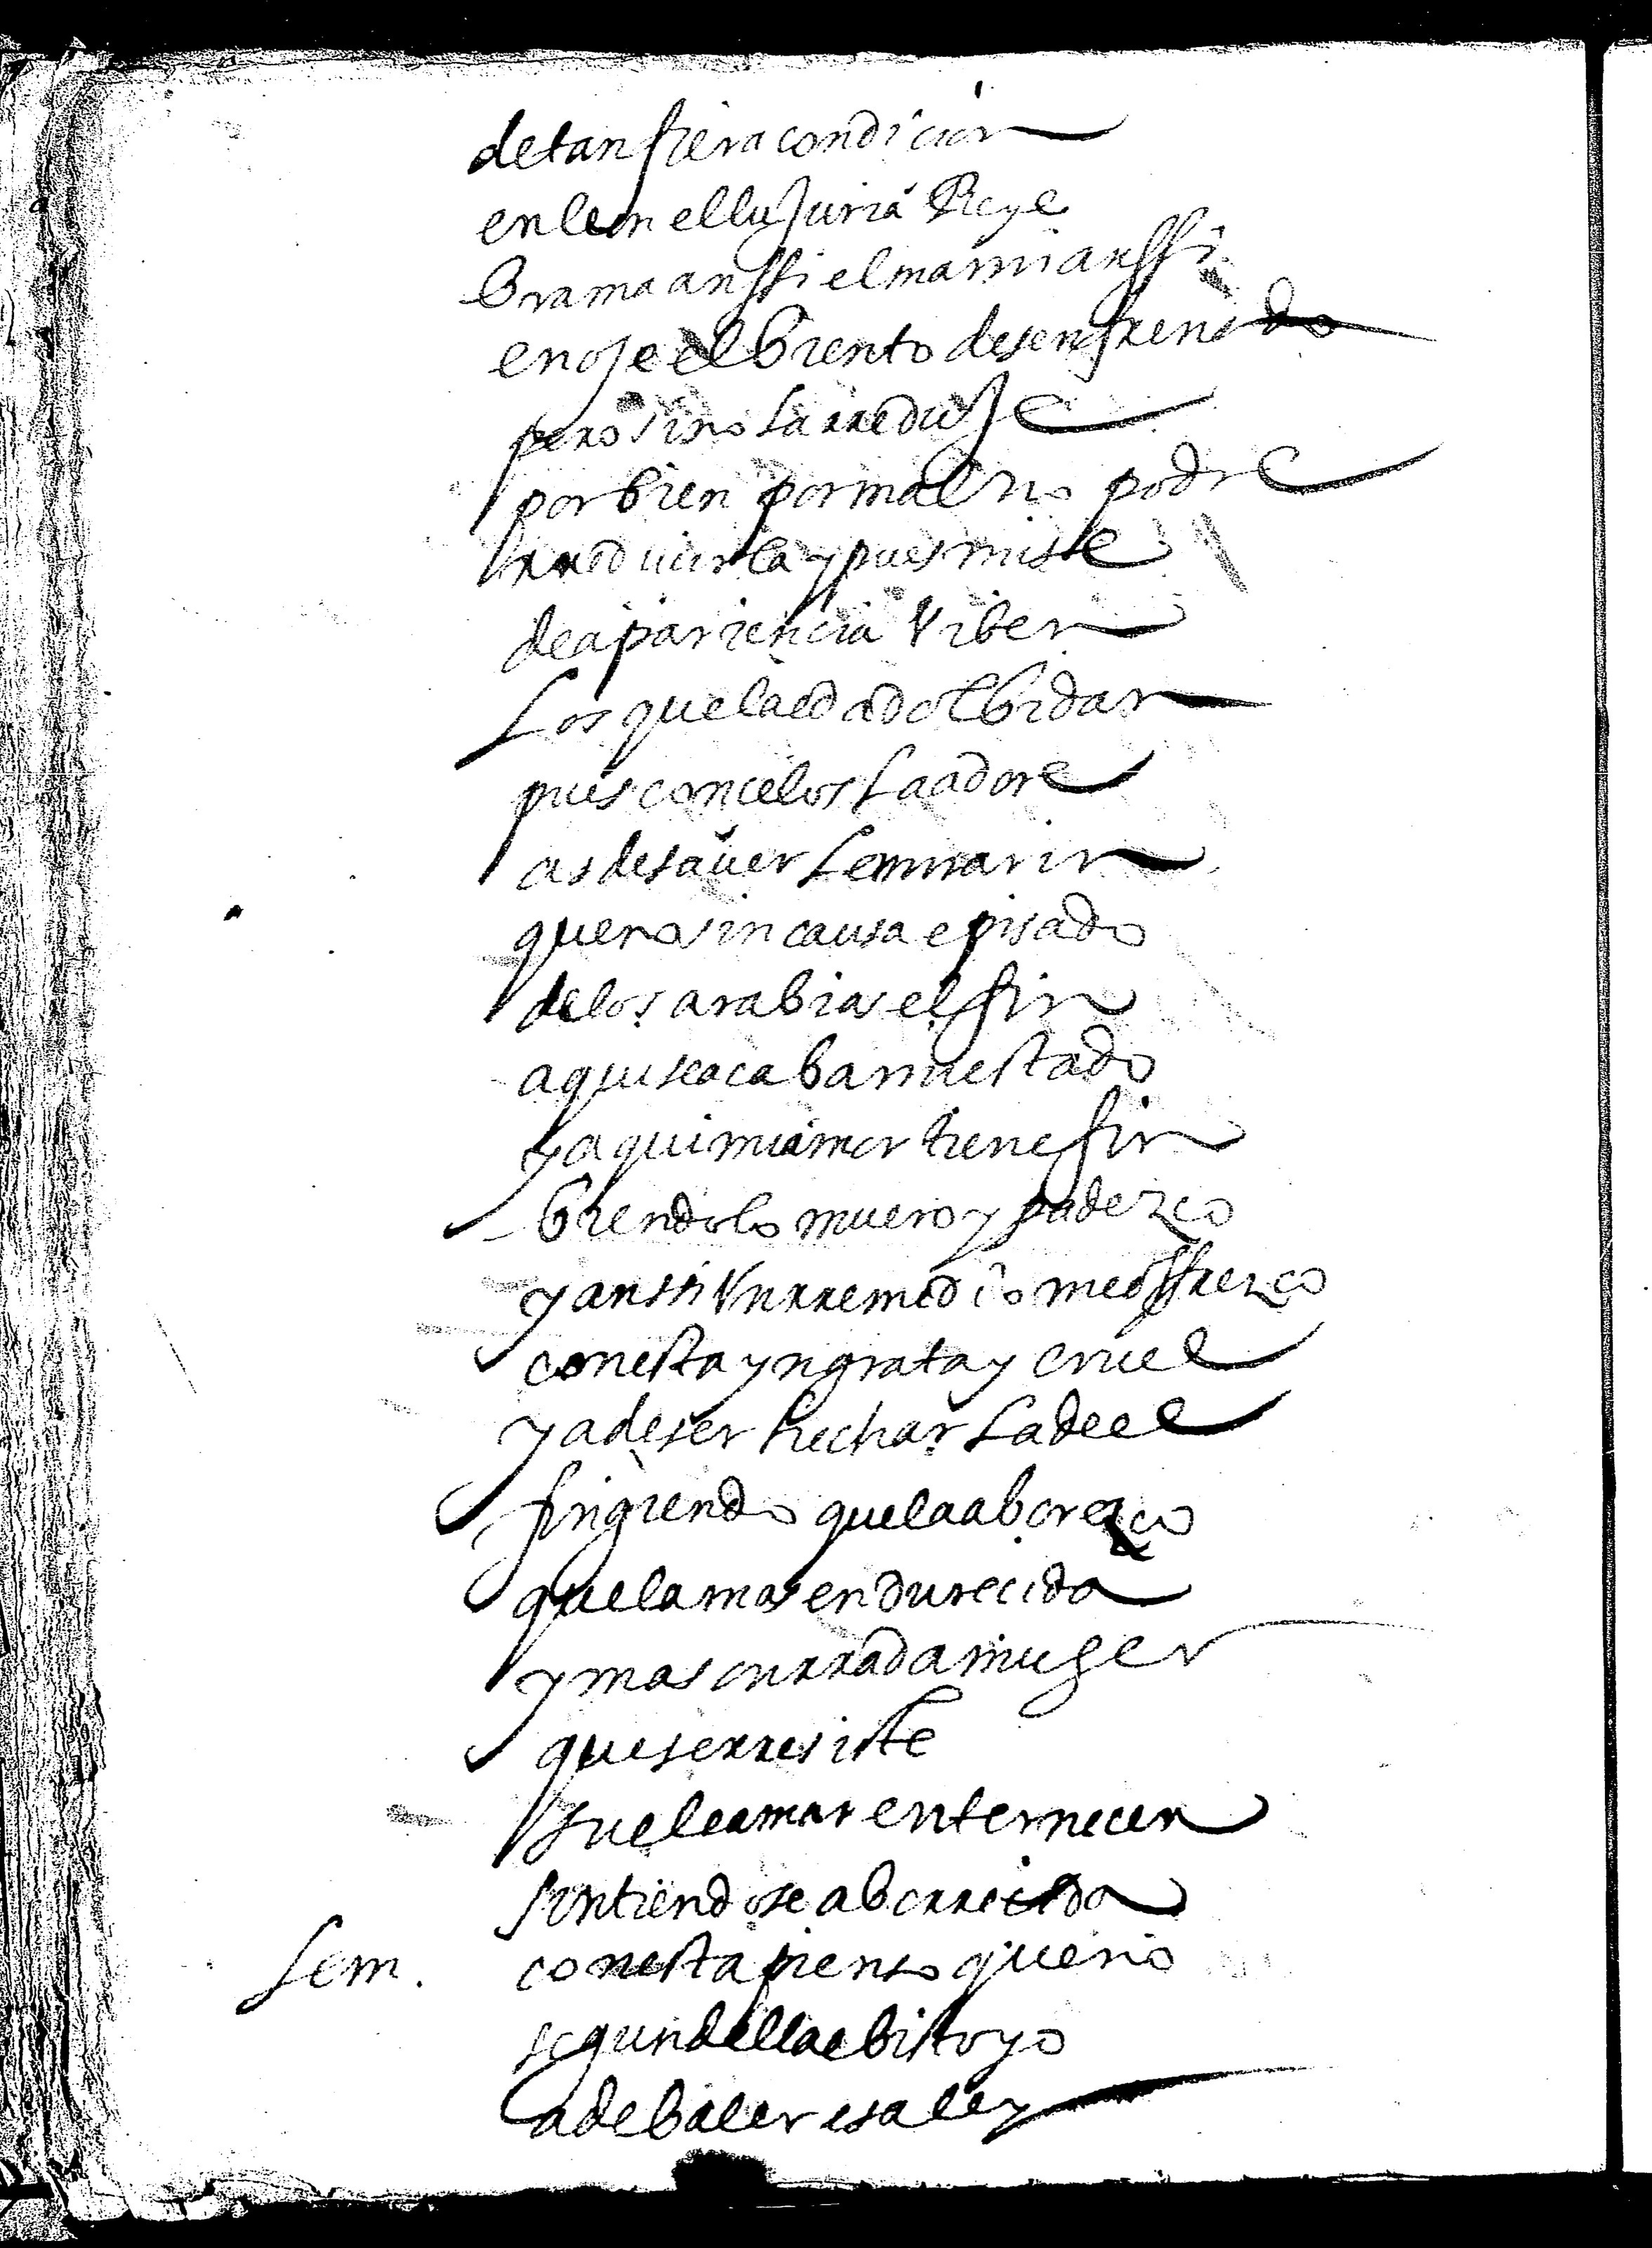 de tan fiera condicion
en leon ellujuria Reye
brama anssi el mar i anssi
enoje el biento desenfrenado
pero si no la rreduje
por bien por mal no podre
rreducirla y pues mis le
de apariencia viben
los que la edad olbidan
pues con celos la adore
as de saver lenmarin
que no sin causa e pisado
de los arabias el fin
aqui se acaba mi estado
y aqui mi amor tiene fin
biendolo muero y padezco
y anssi vn rremedio me offrezco
con esta yngrata y cruel
y a de ser hechar la de el
fingiendo que la aborezco
que la mas endurecida
y mas onrrada muger
que se rresiste
suele amar enternecer
sintiendose aborrecida
Lem. con esta pienso que no
segun della e bisto yo
a de baler esa ley